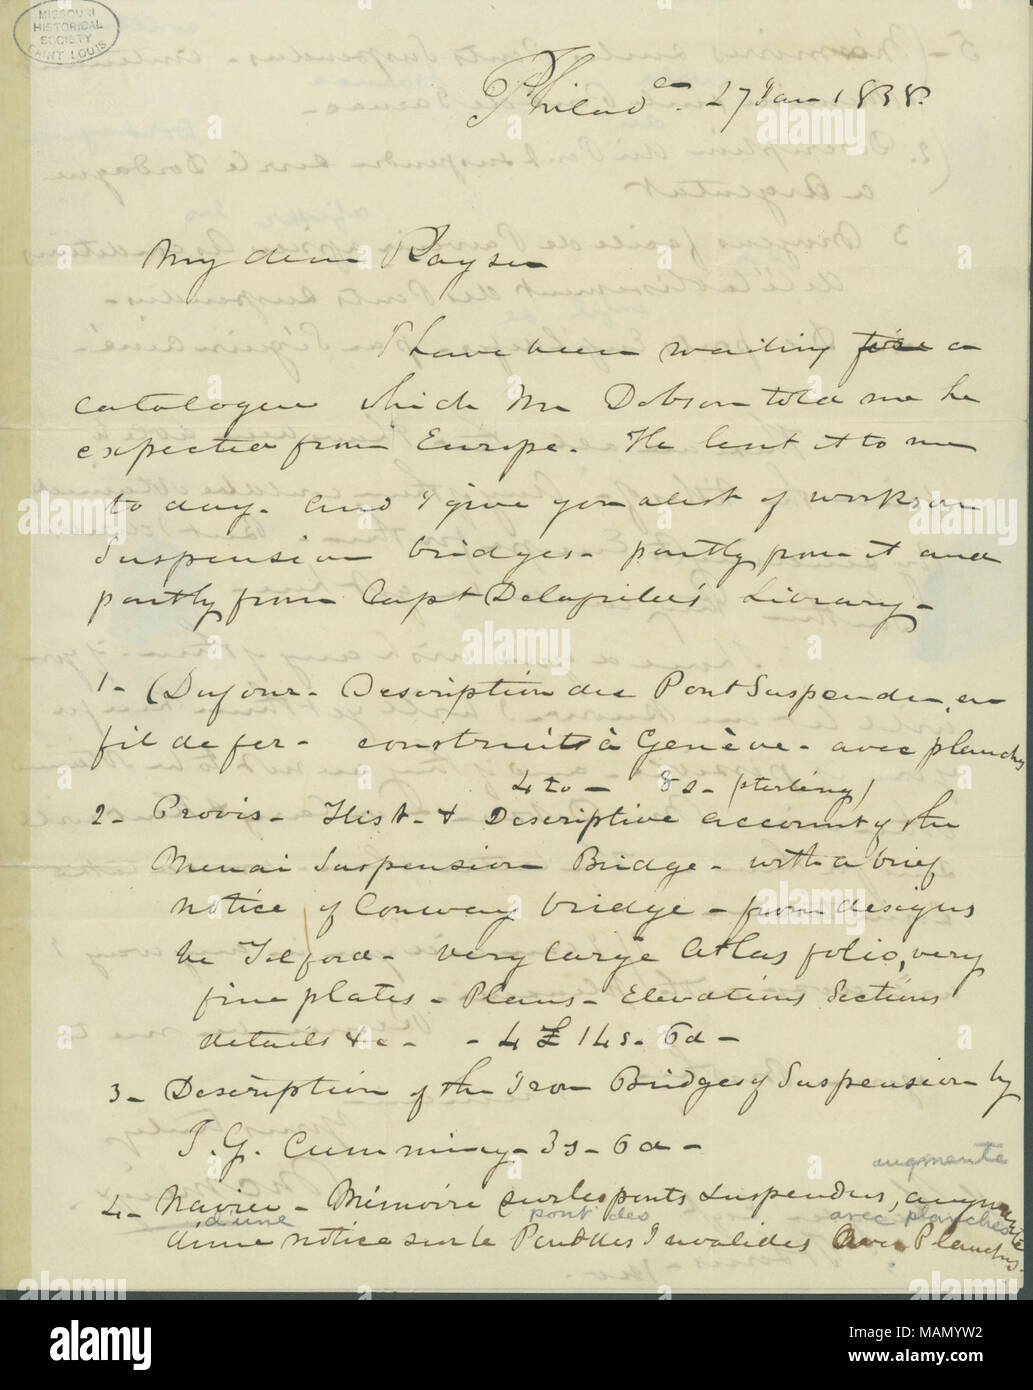 MISSOURI
HISTORICAL
SOCIETY
SAINT LOUIS
Philada. 27 Jan 1838.
My dear Kayser
I have been waiting for a
catalogue which Mr Dobson told me he
expected from Europe. He lent it to me
to day. And I give you a list of works on
Suspension bridges - partly from it and
partly from Capt Delafield's Library -
1 - (Dufour - Description du Pont Suspendu, en
fil de fer - construit à Genève - avec planches
4to - 8s - (sterling)
2 - Provis - Hist - & Descriptive account of the
Menai Suspension Bridge - with a brief
notice of Conway bridge - from designs
be Telford - very large Atlas folio, very
fine plates - Plans - Elevations Sections
details &c - - 4 £ 14s - 6d -
3 - Description of the Iron Bridges of Suspension by
T. G. Cumming - 3s - 6d -
augmenté
4 - Navier - Mémoire sur les ponts suspendus, augmenté
d'une pont des avec planches
d'une notice sur le Pont des Invalides avec Planches.
alamy
Image ID: MAMYW2
www.alamy.com